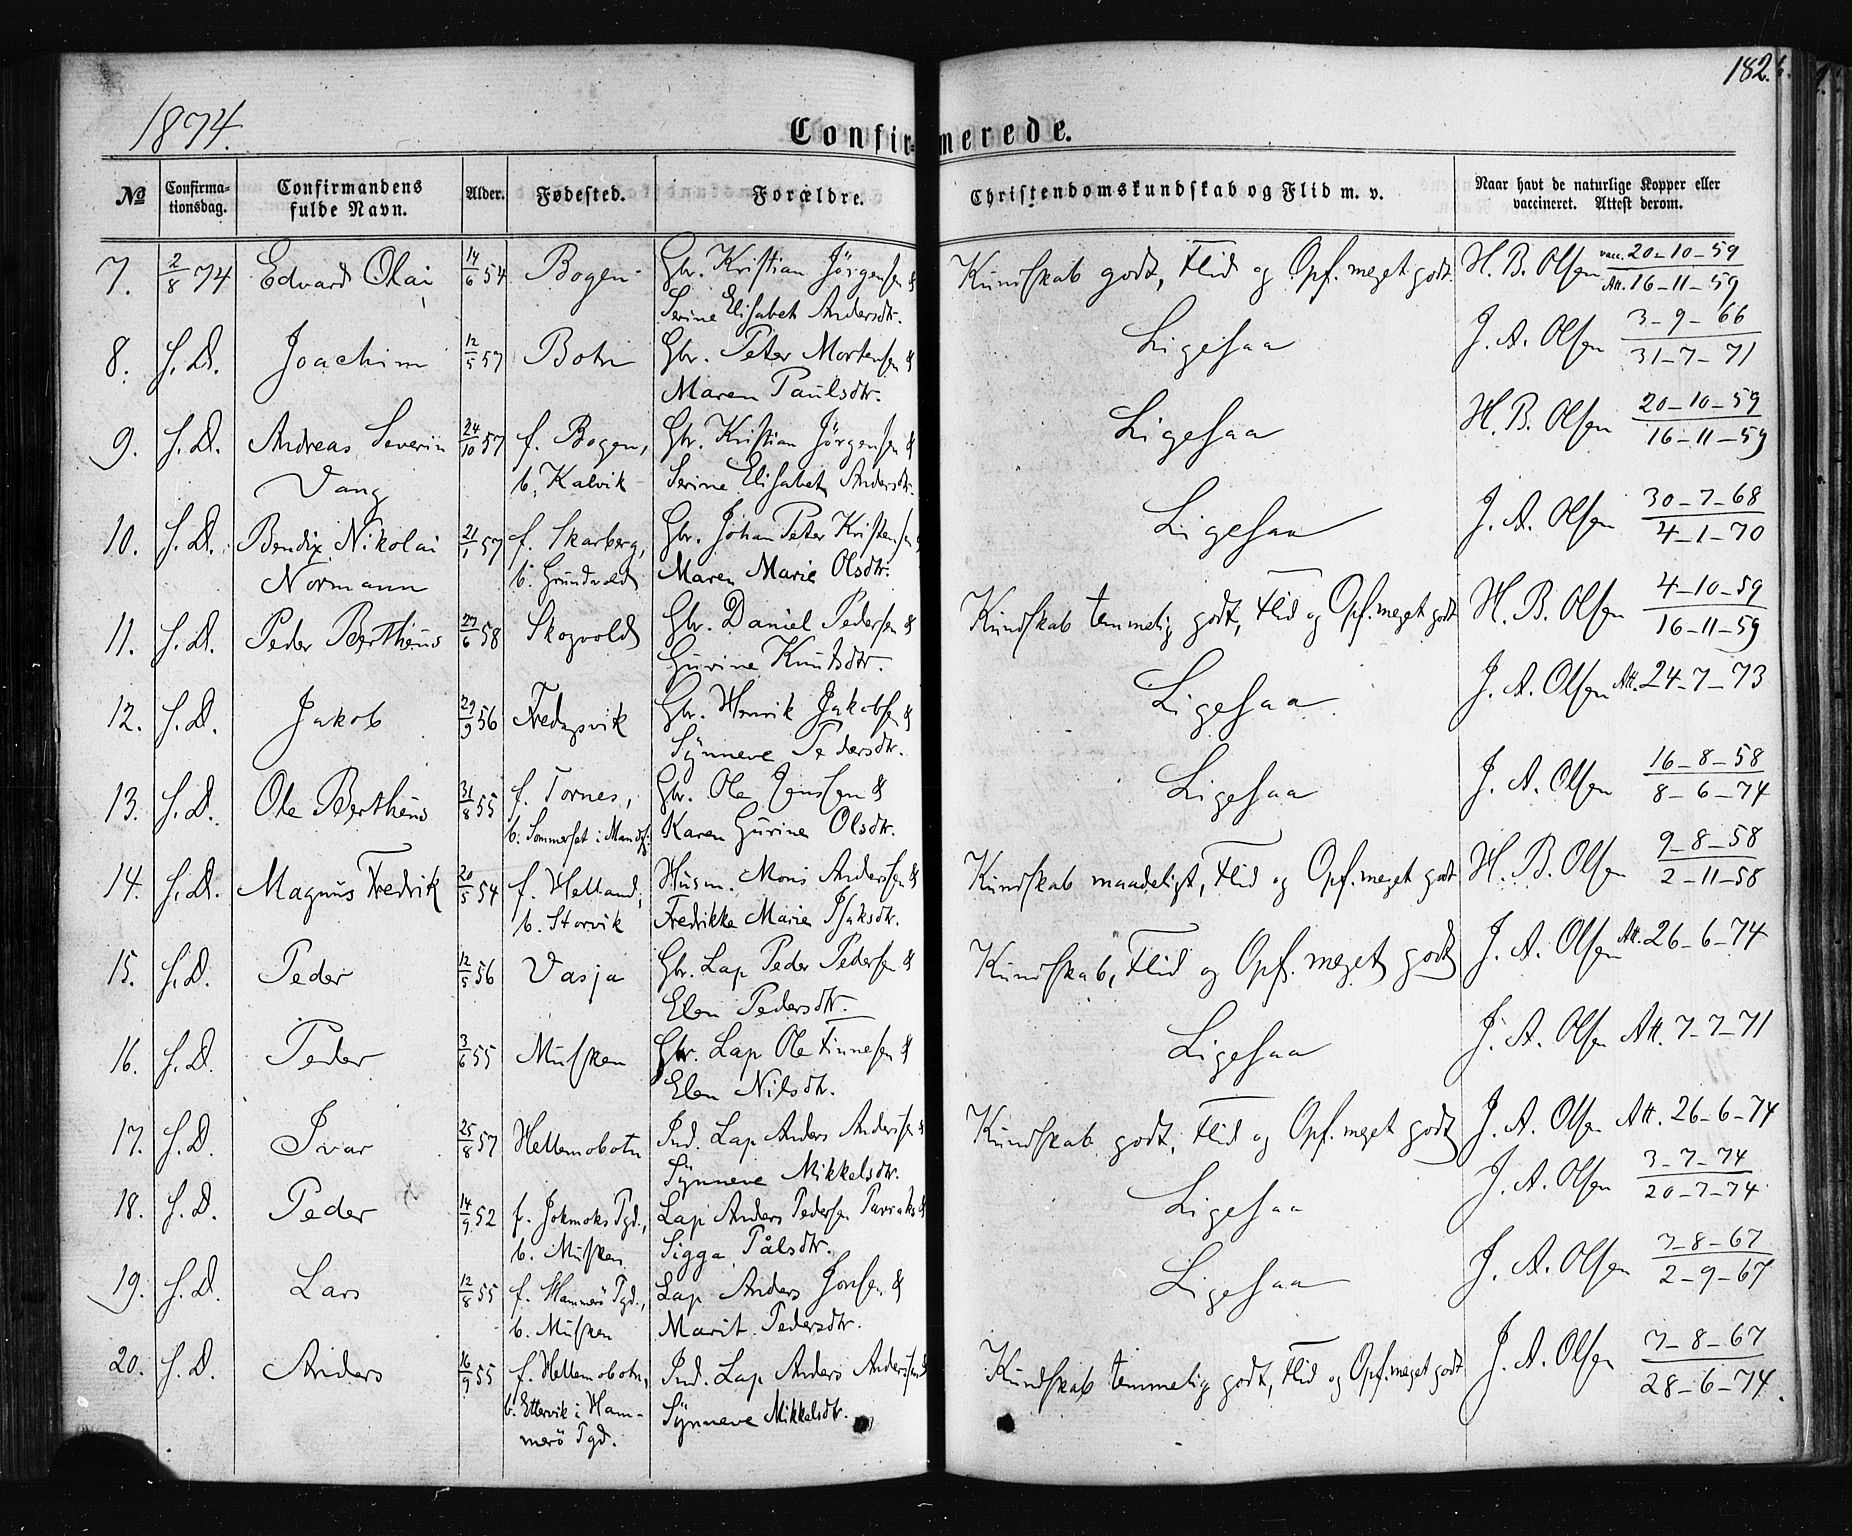 182.
1874.
Confirmerede.
No
Confirma-
tionsdag.
Confirmandens
fulde Navn.
Alder.
Fødested.
Forældre.
Christendomskundskab og Flid m. v.
Naar havt de naturlige Kopper eller
vaccineret. Attest derom.
7. 2/8 74 Edvard Olai 14/6 54 Bogen Gbr. Kristian Jörgensen & Kundskab godt, Flid og Opf. meget godt. H. B. Olsen vacc. 20-10-59
Serine Elisabet Andersdtr. Att. 16-11-59
8. S. D. Joachim 12/5 57 Botn Gbr. Peter Mortensen & Ligesaa J. A. Olsen 3-9-66
Maren Paulsdtr. 31-7-71
9. S. D. Andreas Severin 24/10 57 f. Bogen, Gbr. Kristian Jörgensen & Ligesaa H. B. Olsen 20-10-59
Vang b. Kalvik Serine Elisabet Andersdtr. 16-11-59
10. S. D. Bendix Nikolai 21/1 57 f. Skarberg, Gbr. Johan Peter Kristensen & Ligesaa J. A. Olsen 30-7-68
Normann b. Grundvold Maren Marie Olsdtr. 4-1-70
11. S. D. Peder Bertheus 27/6 58 Skogvold Gbr. Daniel Pedersen & Kundskab temmelig godt, Flid og Opf. meget godt H. B. Olsen 4-10-59
Gurine Knutsdtr. 16-11-59
12. S. D. Jakob 29/9 56 Fredagsvik Gbr. Henrik Jakobsen & Ligesaa J. A. Olsen Att. 24-7-73
Synneve Pedersdtr.
13. S. D. Ole Bertheus 31/8 55 f. Tornes, Gbr. Ole Jenssen & Ligesaa J. A. Olsen 16-8-58
b. Sommerset i Mandfj. Karen Gurine Olsdtr. 8-6-74
14. S. D. Magnus Fredrik 20/5 54 f. Helland, Husm. Mons Anderssen & Kundskab maadeligt, Flid og Opf. meget godt H. B. Olsen 9-8-58
b. Storvik Fredrikke Marie Isaksdtr. 2-11-58
15. S. D. Peder 12/5 56 Vasja Gbr. Lap Peder Pedersen & Kundskab, Flid og Opf. meget godt J. A. Olsen Att. 26-6-74
Elen Pedersdtr.
16. S. D. Peder 3/6 55 Musken Gbr. Lap Ole Finnesen & Ligesaa J. A. Olsen Att. 7-7-71
Elen Nilsdtr.
17. S. D. Ivar 25/8 57 Hellemobotn Ind. Lap Anders Anderssen & Kundskab godt, Flid og Opf. meget godt J. A. Olsen Att. 26-6-74
Synneve Mikkelsdtr.
18. S. D. Peder 14/9 52 f. Jokmoks Pgd., Lap Anders Pedersen & Ligesaa J. A. Olsen 3-7-74
b. Musken Sigga Pålsdtr. 20-7-74
19. S. D. Lars 12/8 55 f. Hammerö Pgd., Lap Anders Jonsen & Ligesaa J. A. Olsen 7-8-67
b. Musken Marit Pedersdtr. 2-9-67
20. S. D. Anders 16/9 55 f. Hellemobotn, Ind. Lap Anders Anderssen & Kundskab temmelig godt, Flid og Opf. meget godt J. A. Olsen 7-8-67
b. Ettervik i Ham- Synneve Mikkelsdtr. 28-6-74.
merö Pgd.